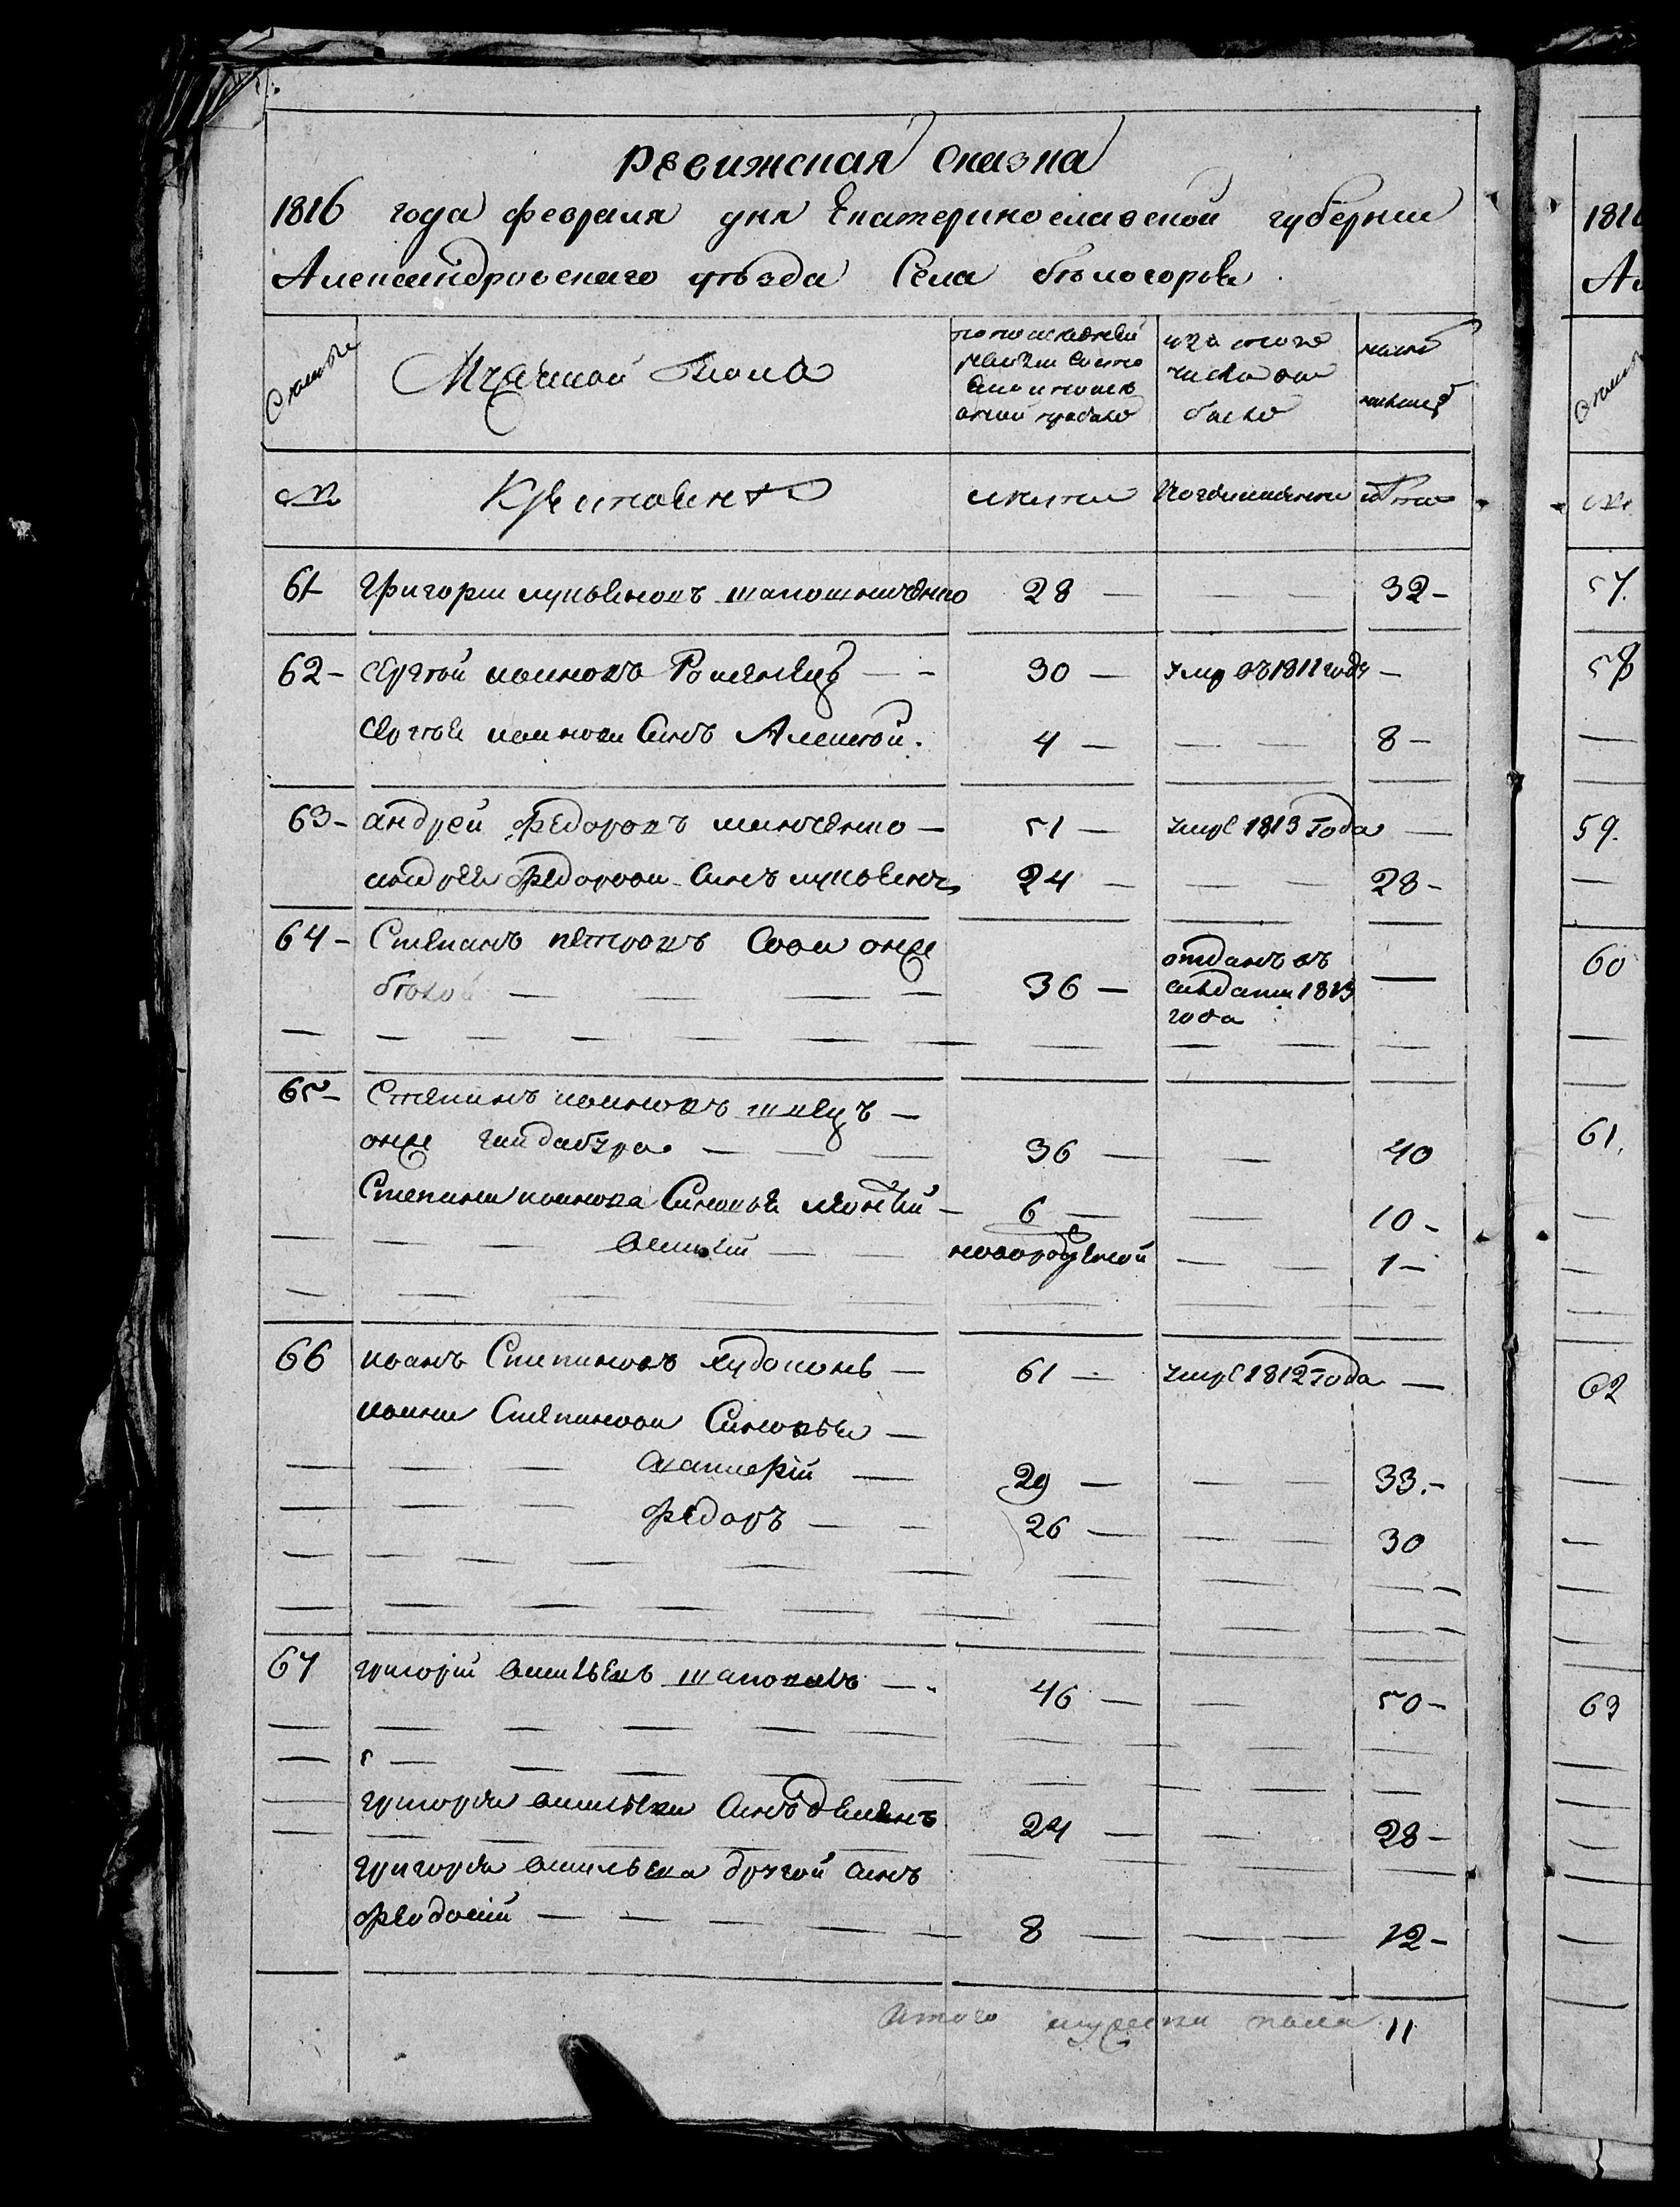 ревижская сказка
1816 года февраля дня Екатеринославской губернии
Александровского уѣзда Села бѣлогорки
Семьи
Мужеской Пола
по последней ревизии состояло и после оной прибыло
изъ того числа выбыло
ныне налицо
№ Крестьянъ лета Когда именно лета
61 григории лукьяновъ шапошниченко 28 — — — 32 —
62 — сергѣй ивановъ Романецъ — — 30 — умр въ 1811 годѣ —
сергѣя иванова Синъ Алексѣй. 4 — — — 8 —
63 — андреи федоровъ шинченко — 51 — умре 1813 года —
андрея федорова Синъ лукьянъ 24 — — — 28 —
64 — Степанъ петровъ онже
36 — отданъ въ солдати 1813 года —
65 — Степанъ ивановъ швецъ —
онже гайдабура — — — 36 — — 40
Степана иванова Синовья леонтий — 6 — — 10 —
— — — василий — — новорожденой — — 1 —
66 иванъ Степановъ худоконь — 61 — умре 1812 года —
ивана Степанова Синовья —
— — — валерий — 29 — — — 33. —
— — — федоръ — — 26 — — — 30
67 григорий васильевъ шаповалъ — — 46 — — 50 —
григория васильева Синъ демянъ 24 — — 28 —
григория васильева другой синъ
феодосий — — — — — 8 — — — 12 —
итого мужеска пола 11
1816
А
57.
58
59.
60
61.
62
63